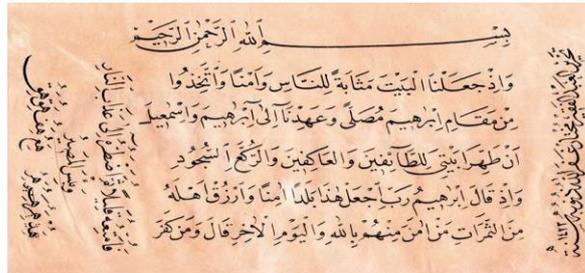 بسم الله الرحمن الرحيم
وَاِذْ جَعَلْنَا الْبَيْتَ مَثَابَةً لِلنَّاسِ وَاَمْنًا وَاتَّخِذُوا
مِنْ مَقَامِ اِبْرٰهِيمَ مُصَلًّى وَعَهِدْنَا اِلٰى اِبْرٰهِيمَ وَاِسْمٰعِيلَ
اَنْ طَهِّرَا بَيْتِيَ لِلطَّائِفِينَ وَالْعَاكِفِينَ وَالرُّكَّعِ السُّجُودِ
وَاِذْ قَالَ اِبْرٰهِيمُ رَبِّ اجْعَلْ هٰذَا بَلَدًا اٰمِنًا وَارْزُقْ اَهْلَهُ
مِنَ الثَّمَرَاتِ مَنْ اٰمَنَ مِنْهُمْ بِاللهِ وَالْيَوْمِ الْاٰخِرِ قَالَ وَمَنْ كَفَرَ
فَاُمَتِّعُهُ قَلِيلًا ثُمَّ اَضْطَرُّهُ اِلٰى عَذَابِ النَّارِ
وَبِئْسَ الْمَصِيرُ